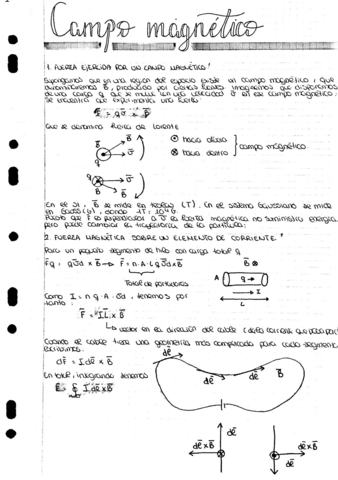 Campo magnético
1. FUERZA EJERCIDA POR UN CAMPO MAGNÉTICO
Supongamos que en una región del espacio existe un campo magnético, que
denominaremos B̅, producido por ciertas fuentes. Imaginemos que disponemos
de una carga q que se mueve con una velocidad v̅ en ese campo magnético.
Se encuentra que experimenta una fuerza:
F̅ = q v̅ x B̅
Que se denomina fuerza de Lorentz
B̅
v̅
q
⊙ hacia afuera
⊗ hacia dentro
campo magnético
q
B̅
v̅
B̅
En el SI, B̅ se mide en teslas (T). En el sistema Gaussiano se mide
en Gauss (G), donde 1T = 10⁴ G.
Puesto que F̅ es perpendicular a v̅ la fuerza magnética no suministra energía
pero puede cambiar la trayectoria de la partícula.
2. FUERZA MAGNÉTICA SOBRE UN ELEMENTO DE CORRIENTE
Para un pequeño segmento de hilo con carga total q
F̅q = q v̅d x B̅ → F̅ = n·A·L q v̅d x B̅
Total de portadores
B̅ ⊗
A
q →
→ I
L
Como I = n q · A · v̅d, tenemos por
tanto:
F̅ = I L̅ x B̅
vector en la dirección del cable
Cuando el cable tiene una geometría más complicada para cada segmento
dF̅ = I dl̅ x B̅
En total, integrando tenemos
F̅ = ∮ I dl̅ x B̅
dl̅
dl̅
dl̅
B̅
dl̅
dl̅ x B̅
dl̅ x B̅
dl̅